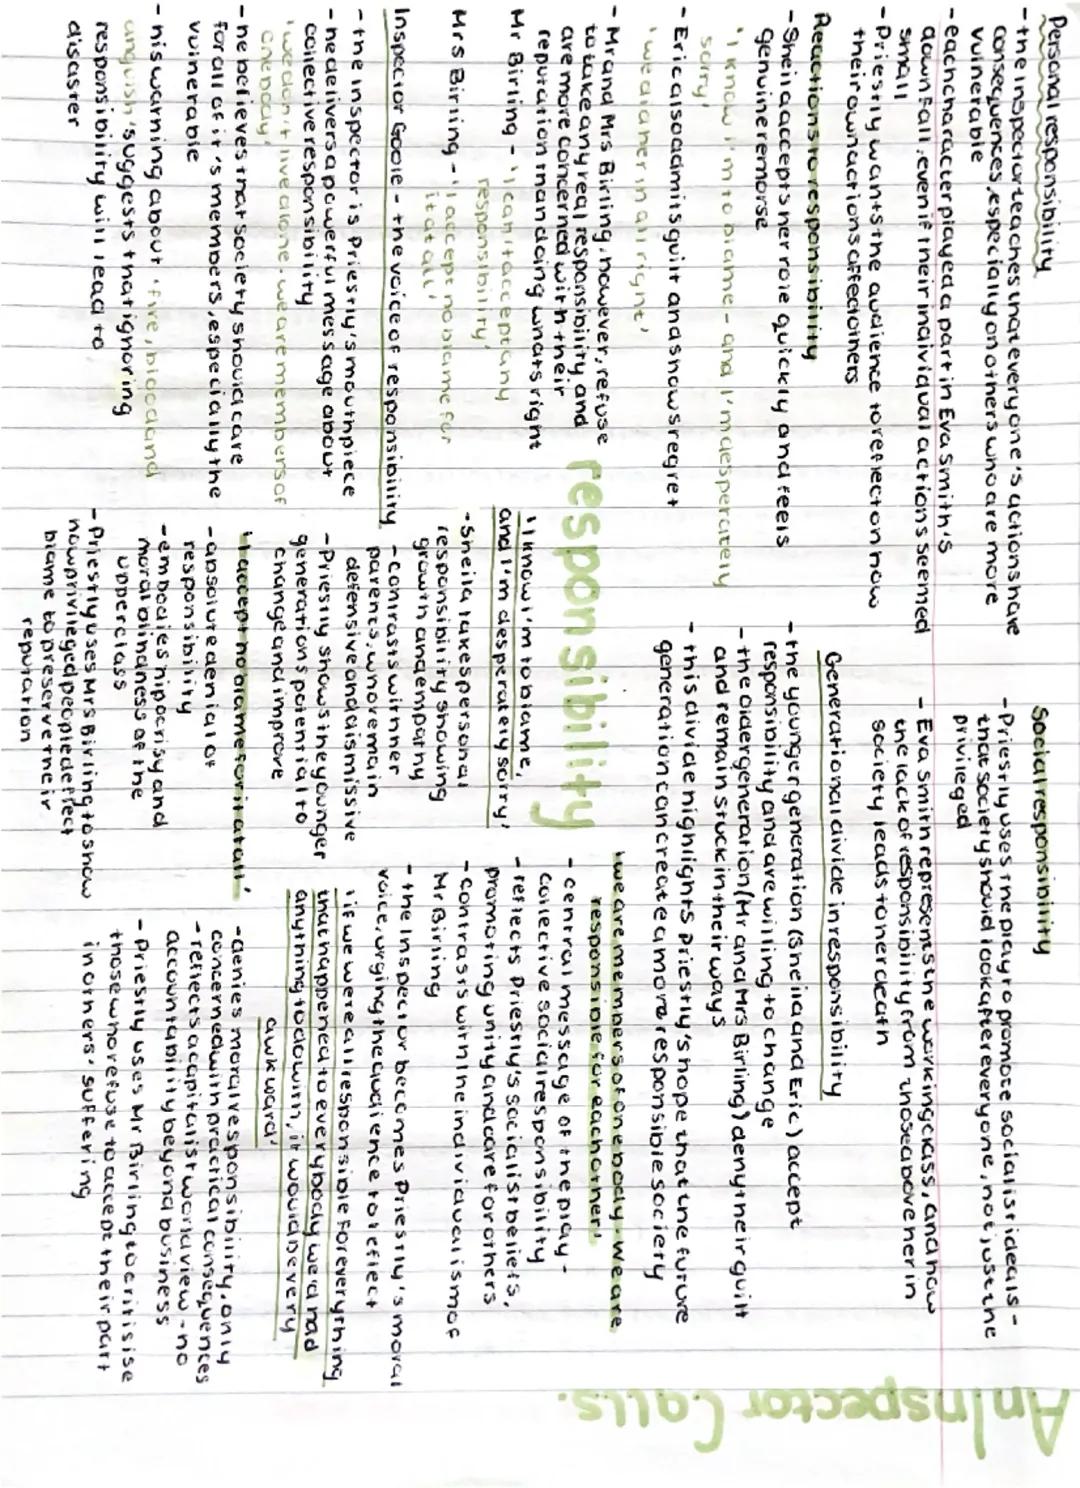 An Inspector Calls.
Personal responsibility
- the inspector teaches that everyone's actions have
consequences, especially on others who are more
vulnerable
- each character played a part in Eva Smith's
downfall, even if their individual actions seemed
small
- Priestly wants the audience to reflect on how
their own actions affect others
Reactions to responsibility
- Sheila accepts her role quickly and feels
genuine remorse
'I know I'm to blame - and I'm desperately
sorry'
- Eric also admits guilt and shows regret
'we did her in all right'
- Mr and Mrs Birling, however, refuse
to take any real responsibility and
are more concerned with their
reputation than doing whats right
Mr Birling - 'I can't accept any
responsibility'
Mrs Birling - 'I accept no blame for
it at all'
Inspector Goole - the voice of responsibility
- the inspector is Priestly's mouthpiece
- he delivers a powerful message about
collective responsibility
'we don't live alone. we are members of
one body'
- he believes that society should care
for all of it's members, especially the
vulnerable
- his warning about 'fire, blood and
anguish' suggests that ignoring
responsibility will lead to
disaster
Social responsibility
- Priestly uses the play to promote socialist ideals -
that society should look after everyone, not just the
privileged
- Eva Smith represents the working class, and how
the lack of responsibility from those above her in
society leads to her death
Generational divide in responsibility
- the younger generation (Sheila and Eric) accept
responsibility and are willing to change
- the older generation (Mr and Mrs Birling) deny their guilt
and remain stuck in their ways
- this divide highlights Priestly's hope that the future
generation can create a more responsible society
responsibility
'I know I'm to blame,
and I'm desperately sorry'
- Sheila takes personal
responsibility showing
growth and empathy
- contrasts with her
parents, who remain
defensive and dismissive
- Priestly shows the younger
generations potential to
change and improve
'I accept no blame for it at all'
- absolute denial of
responsibility
- embodies hipocrisy and
moral blindness of the
upper class
- Priestly uses Mrs Birling to show
how privileged people deflect
blame to preserve their
reputation
'we are members of one body. We are
responsible for each other'
- central message of the play -
collective social responsibility
- reflects Priestly's socialist beliefs,
promoting unity and care for others
- contrasts with the individualism of
Mr Birling
- the Inspector becomes Priestly's moral
voice, urging the audience to reflect
'if we were all responsible for everything
that happened to everybody we'd had
anything to do with, it would be very
awkward'
- denies moral responsibility, only
concerned with practical consequences
- reflects a capitalist world view - no
accountability beyond business
- Priestly uses Mr Birling to critisise
those who refuse to accept their part
in others' suffering